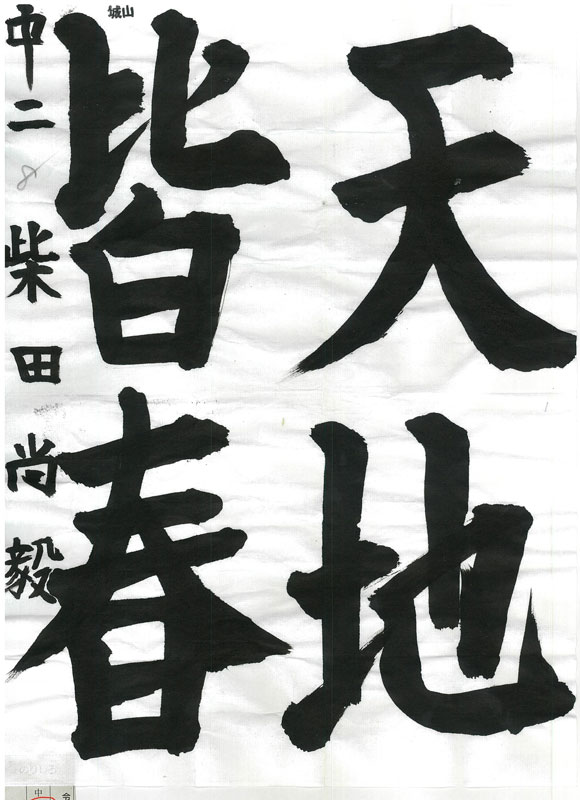 天地
皆春
中二 柴田尚毅
城山
8
中
令